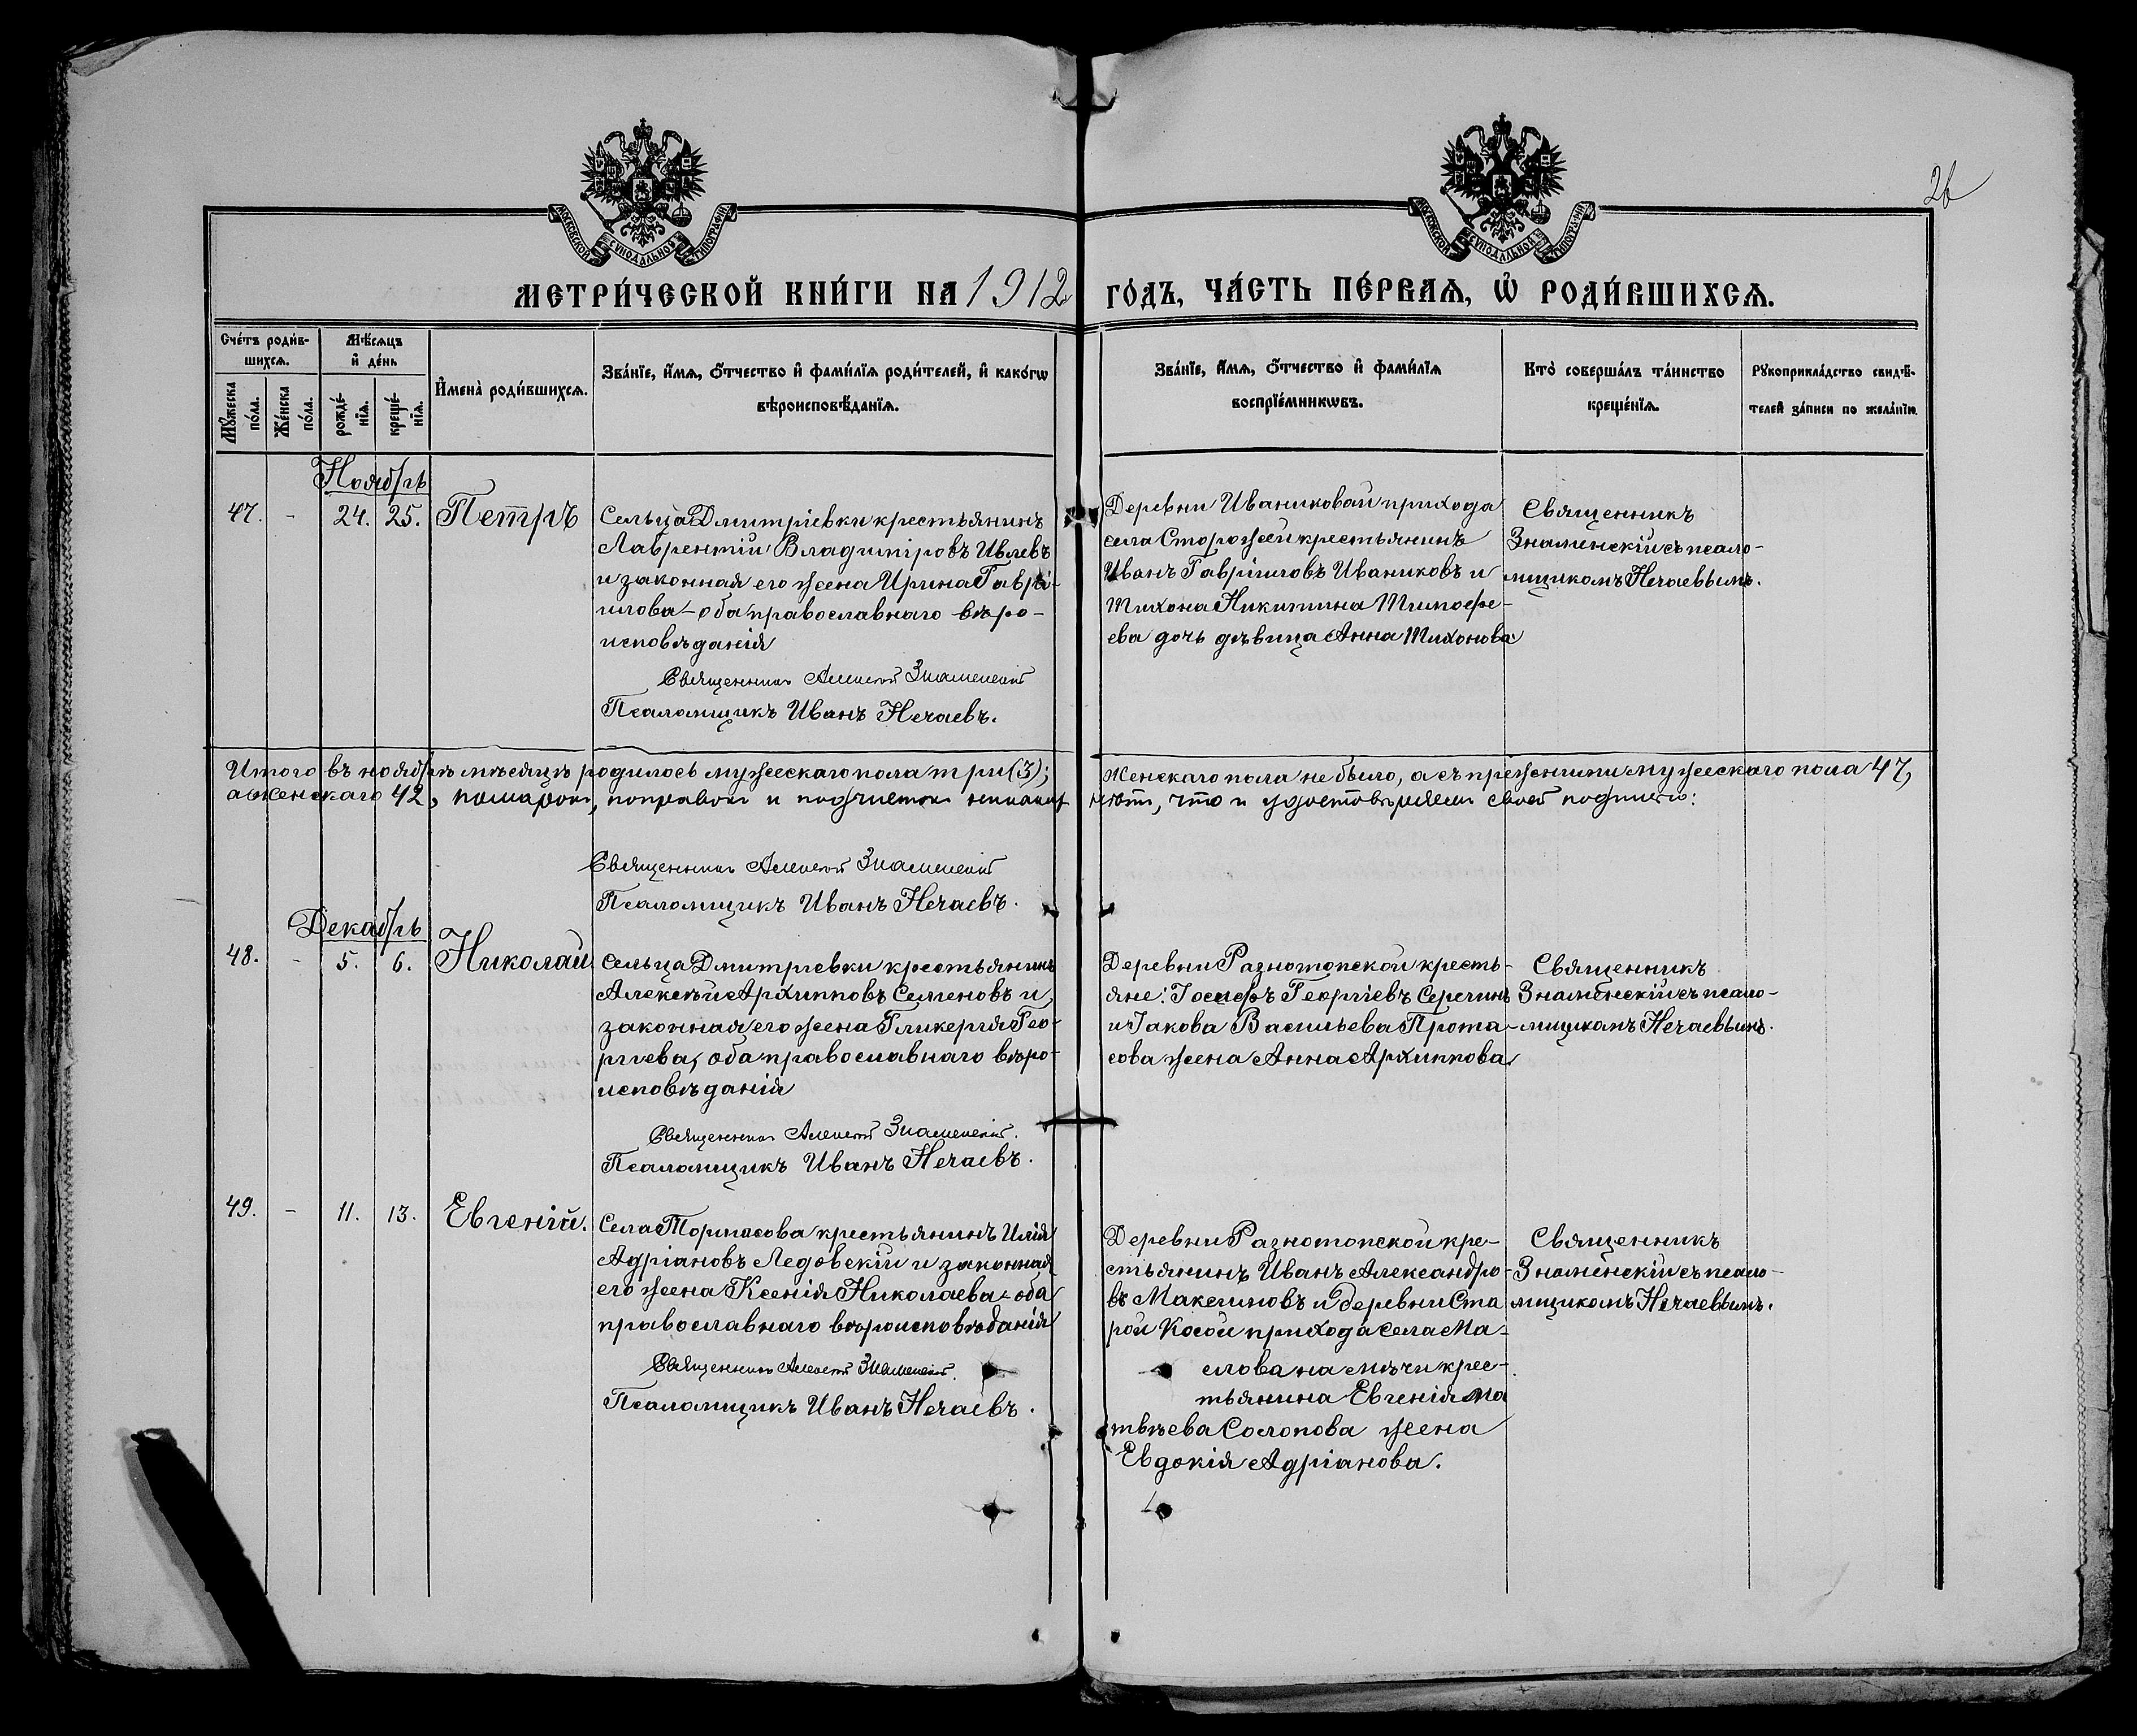 26
МОСКОВСКОЙ СѴНОДАЛЬНОЙ ТИПОГРАФІИ
МОСКОВСКОЙ СѴНОДАЛЬНОЙ ТИПОГРАФІИ
МЕТРИ́ЧЕСКОЙ КНИ́ГИ НА 1912 ГО́ДЪ, ЧА́СТЬ ПЕ́РВАѦ, Ѡ҆ РОДИ́ВШИХСѦ.
Сче́тъ роди́в-
шихсѧ.
Мꙋ́жеска по́ла.
Же́нска по́ла.
Мѣ́сѧцъ
и҆ де́нь
рожде́-
нїѧ.
креще́-
нїѧ.
И҆мена̀ роди́вшихсѧ.
Зва́нїе, и҆́мѧ, ѻ҆́тчество и҆ фами́лїѧ роди́телей, и҆ како́гѡ
вѣроисповѣ́данїѧ.
Зва́нїе, и҆́мѧ, ѻ҆́тчество и҆ фами́лїѧ
воспрїе́мникѡвъ.
Кто̀ соверша́лъ та́инство
креще́нїѧ.
Рꙋкоприкла́дство свидѣ́-
телей за́писи по жела́нїю.
Ноябрь
47. - 24. 25. Петръ
Сельца Дмитріевки крестьянинъ
Лаврентій Владиміровъ Ивлевъ
и законная его жена Ирина Гаврі-
илова - оба православнаго вѣро-
исповѣданія
Священникъ Алексей Знаменскій
Псаломщикъ Иванъ Нечаевъ.
Деревни Иваниковой прихода
села Сторожей крестьянинъ
Иванъ Гавріиловъ Иваниковъ и
Тихона Никитина Тимофе-
ева дочь дѣвица Анна Тихонова
Священникъ
Знаменскій съ псало-
мщикомъ Нечаевымъ.
Итого въ ноябрѣ мѣсяцѣ родилось мужескаго пола три (3); женскаго пола не было, а съ прежними мужескаго пола 47,
а женскаго 42, помарокъ, поправокъ и подчистокъ никакихъ нѣтъ, что и удостовѣряемъ своей подписью:
Священникъ Алексей Знаменскій
Псаломщикъ Иванъ Нечаевъ.
Декабрь
48. - 5. 6. Николай
Сельца Дмитріевки крестьянинъ
Алексѣй Архипповъ Семеновъ и
законная его жена Гликерія Гео-
ргіева, оба православнаго вѣро-
исповѣданія
Священникъ Алексей Знаменскій.
Псаломщикъ Иванъ Нечаевъ.
Деревни Разнотопской кресть-
яне: Іосифъ Георгіевъ Серегинъ
и Іакова Васильева Прота-
сова жена Анна Архиппова
Священникъ
Знаменскій съ псало-
мщикомъ Нечаевымъ.
49. - 11. 13. Евгеній.
Села Торпасова крестьянинъ Илія
Адріановъ Ледовскій и законная
его жена Ксенія Николаева - оба
православнаго вѣроисповѣданія
Священникъ Алексей Знаменскій.
Псаломщикъ Иванъ Нечаевъ.
Деревни Разнотопской кре-
стьянинъ Иванъ Александро-
въ Максимовъ и деревни Ста
рой Косой прихода села Ма-
слова на мѣчи крес-
тьянина Евгенія Ма
твѣева Солопова жена
Евдокія Адріанова.
Священникъ
Знаменскій съ псало-
мщикомъ Нечаевымъ.